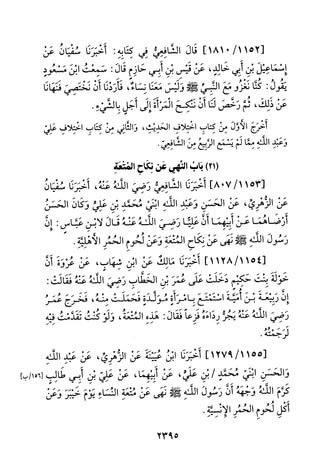 [١٨١٠/١١٥٢] قَالَ الشَّافِعِيُّ فِي كِتَابِهِ: أَخْبَرَنَا سُفْيَانُ عَنْ
إِسْمَاعِيْلَ بْنِ أَبِي خَالِدٍ، عَنْ قَيْسِ بْنِ أَبِي حَازِمٍ قَالَ: سَمِعْتُ ابْنَ مَسْعُودٍ
يَقُولُ: كُنَّا نَغْزُو مَعَ النَّبِيِّ ﷺ وَلَيْسَ مَعَنَا نِسَاءٌ، فَأَرَدْنَا أَنْ نَخْتَصِيَ فَنَهَانَا
عَنْ ذَلِكَ، ثُمَّ رَخَّصَ لَنَا أَنْ نَنْكِحَ الْمَرْأَةَ إِلَى أَجَلٍ بِالشَّيْءِ.
أَخْرَجَ الْأَوَّلَ مِنْ كِتَابِ اخْتِلَافِ الْحَدِيْثِ، وَالثَّانِي مِنْ كِتَابِ اخْتِلَافِ عَلِيٍّ
وَعَبْدِ اللَّهِ مِمَّا لَمْ يَسْمَعِ الرَّبِيعُ مِنَ الشَّافِعِيِّ.
(٢١) بَابُ النَّهْيِ عَنْ نِكَاحِ الْمُتْعَةِ
[٨٠٧/١١٥٣] أَخْبَرَنَا الشَّافِعِيُّ رَضِيَ اللَّهُ عَنْهُ، أَخْبَرَنَا سُفْيَانُ
عَنْ الزُّهْرِيِّ، عَنْ الْحَسَنِ وَعَبْدِ اللَّهِ ابْنَيْ مُحَمَّدِ بْنِ عَلِيٍّ وَكَانَ الْحَسَنُ
أَرْضَاهُمَا عَنْ أَبِيْهِمَا أَنَّ عَلِيًّا رَضِيَ اللَّهُ عَنْهُ قَالَ لابْنِ عَبَّاسٍ: إِنَّ
رَسُولَ اللَّهِ ﷺ نَهَى عَنْ نِكَاحِ الْمُتْعَةِ وَعَنْ لُحُومِ الْحُمُرِ الْأَهْلِيَّةِ.
[١١٢٨/١١٥٤] أَخْبَرَنَا مَالِكٌ عَنْ ابْنِ شِهَابٍ، عَنْ عُرْوَةَ أَنَّ
خَوْلَةَ بِنْتَ حَكِيْمٍ دَخَلَتْ عَلَى عُمَرَ بْنِ الْخَطَّابِ رَضِيَ اللَّهُ عَنْهُ فَقَالَتْ:
إِنَّ رَبِيْعَةَ بْنَ أُمَيَّةَ اسْتَمْتَعَ بِامْرَأَةٍ مُوَلَّدَةٍ فَحَمَلَتْ مِنْهُ، فَخَرَجَ عُمَرُ
رَضِيَ اللَّهُ عَنْهُ يَجُرُّ رِدَاءَهُ فَزِعاً فَقَالَ: هَذِهِ الْمُتْعَةُ، وَلَوْ كُنْتُ تَقَدَّمْتُ فِيْهِ
لَرَجَمْتُهُ.
[١٢٧٩/١١٥٥] أَخْبَرَنَا ابْنُ عُيَيْنَةَ عَنْ الزُّهْرِيِّ، عَنْ عَبْدِ اللَّهِ
وَالْحَسَنِ ابْنَيْ مُحَمَّدٍ / بْنِ عَلِيٍّ، عَنْ أَبِيْهِمَا، عَنْ عَلِيِّ بْنِ أَبِي طَالِبٍ [١٥٦/ب]
كَرَّمَ اللَّهُ وَجْهَهُ أَنَّ رَسُولَ اللَّهِ ﷺ نَهَى عَنْ مُتْعَةِ النِّسَاءِ يَوْمَ خَيْبَرَ وَعَنْ
أَكْلِ لُحُومِ الْحُمُرِ الْإِنْسِيَّةِ.
٢٣٩٥